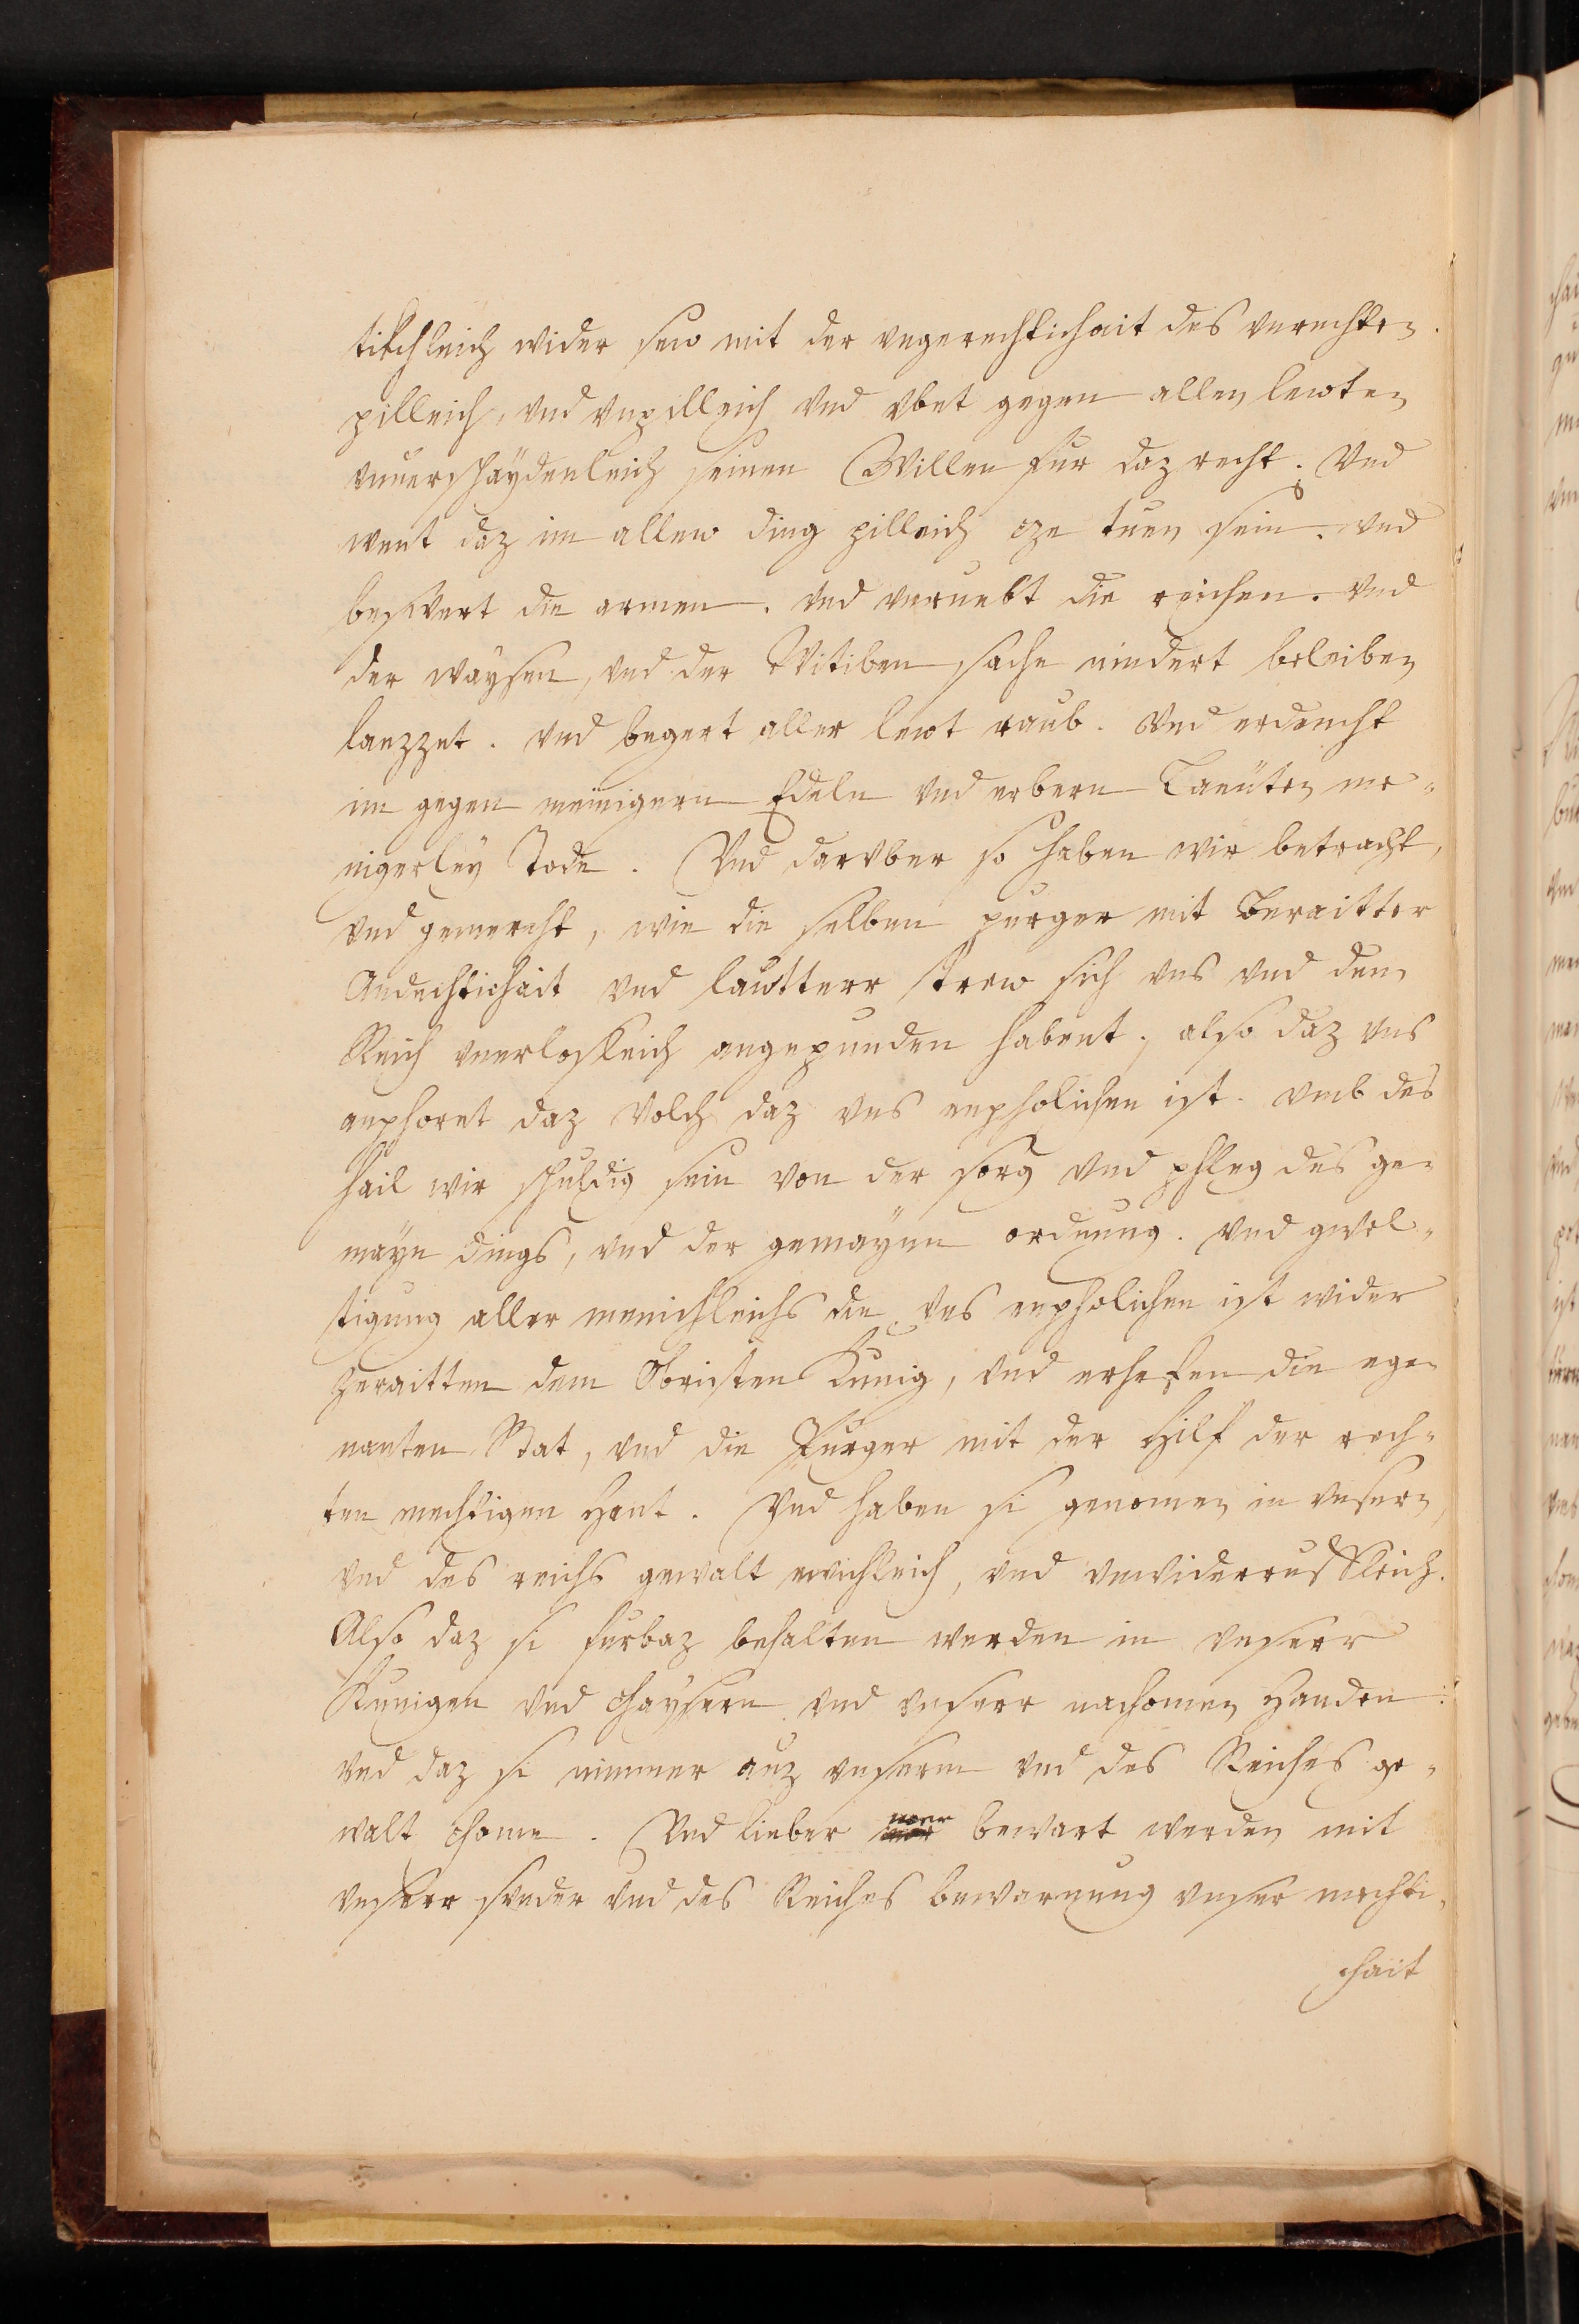 tikchleich wider sew mit der vngerechtichait des vnrechten.
pilleich, vnd vnpilleich vnd vbet gegen allen lewten
vnuerschaydenleich seinen Willen fur daz recht. Vnd
went daz im allew ding pilleich cze tuen sein. vnd
beswert die armen. vnd veruebt die reichen. vnd
der waysen, vnd der Witiben sache nindert beleiben
laezzet. vnd begert aller lewt raub. Vnd erdencht
im gegen meinigern Edeln vnd erbern Laeuten me-
nigerley Tode. Vnd darvber so haben wir betracht,
vnd gemercht, wie die selben purger mit beraitter
Andechtichait vnd lautterr trew sich vns vnd dem
Reich vnerlosleich angepunden habent, also daz vns
anphoret daz Volch daz vns enpholichen ist. vmb des
hail wir schuldig sein von der sorg vnd phleg des ge-
mayn dings, vnd der gemaynn ordnung. vnd gwel-
tigung aller menichleichs die vns enpholichen ist wider
zeraitten dem Obristen Kunig, vnd erhefen die ege-
nanten Stat, vnd die Purger mit der Hilf der rech-
ten mechtigen Hant. Vnd haben si genomen in vnsern,
vnd des reichs gewalt ewichleich, vnd vnwiderrufleich.
Also daz si furbaz behalten werden in vnserr
Kunigen vnd chaysern vnd vnserr nachomen Handen.
vnd daz si nimmer auz vnserm vnd des Reiches ge-
walt chome. Vnd lieber bewart werden mit
vnserr sunder vnd des Reiches bewarnung vnser mechti-
chait